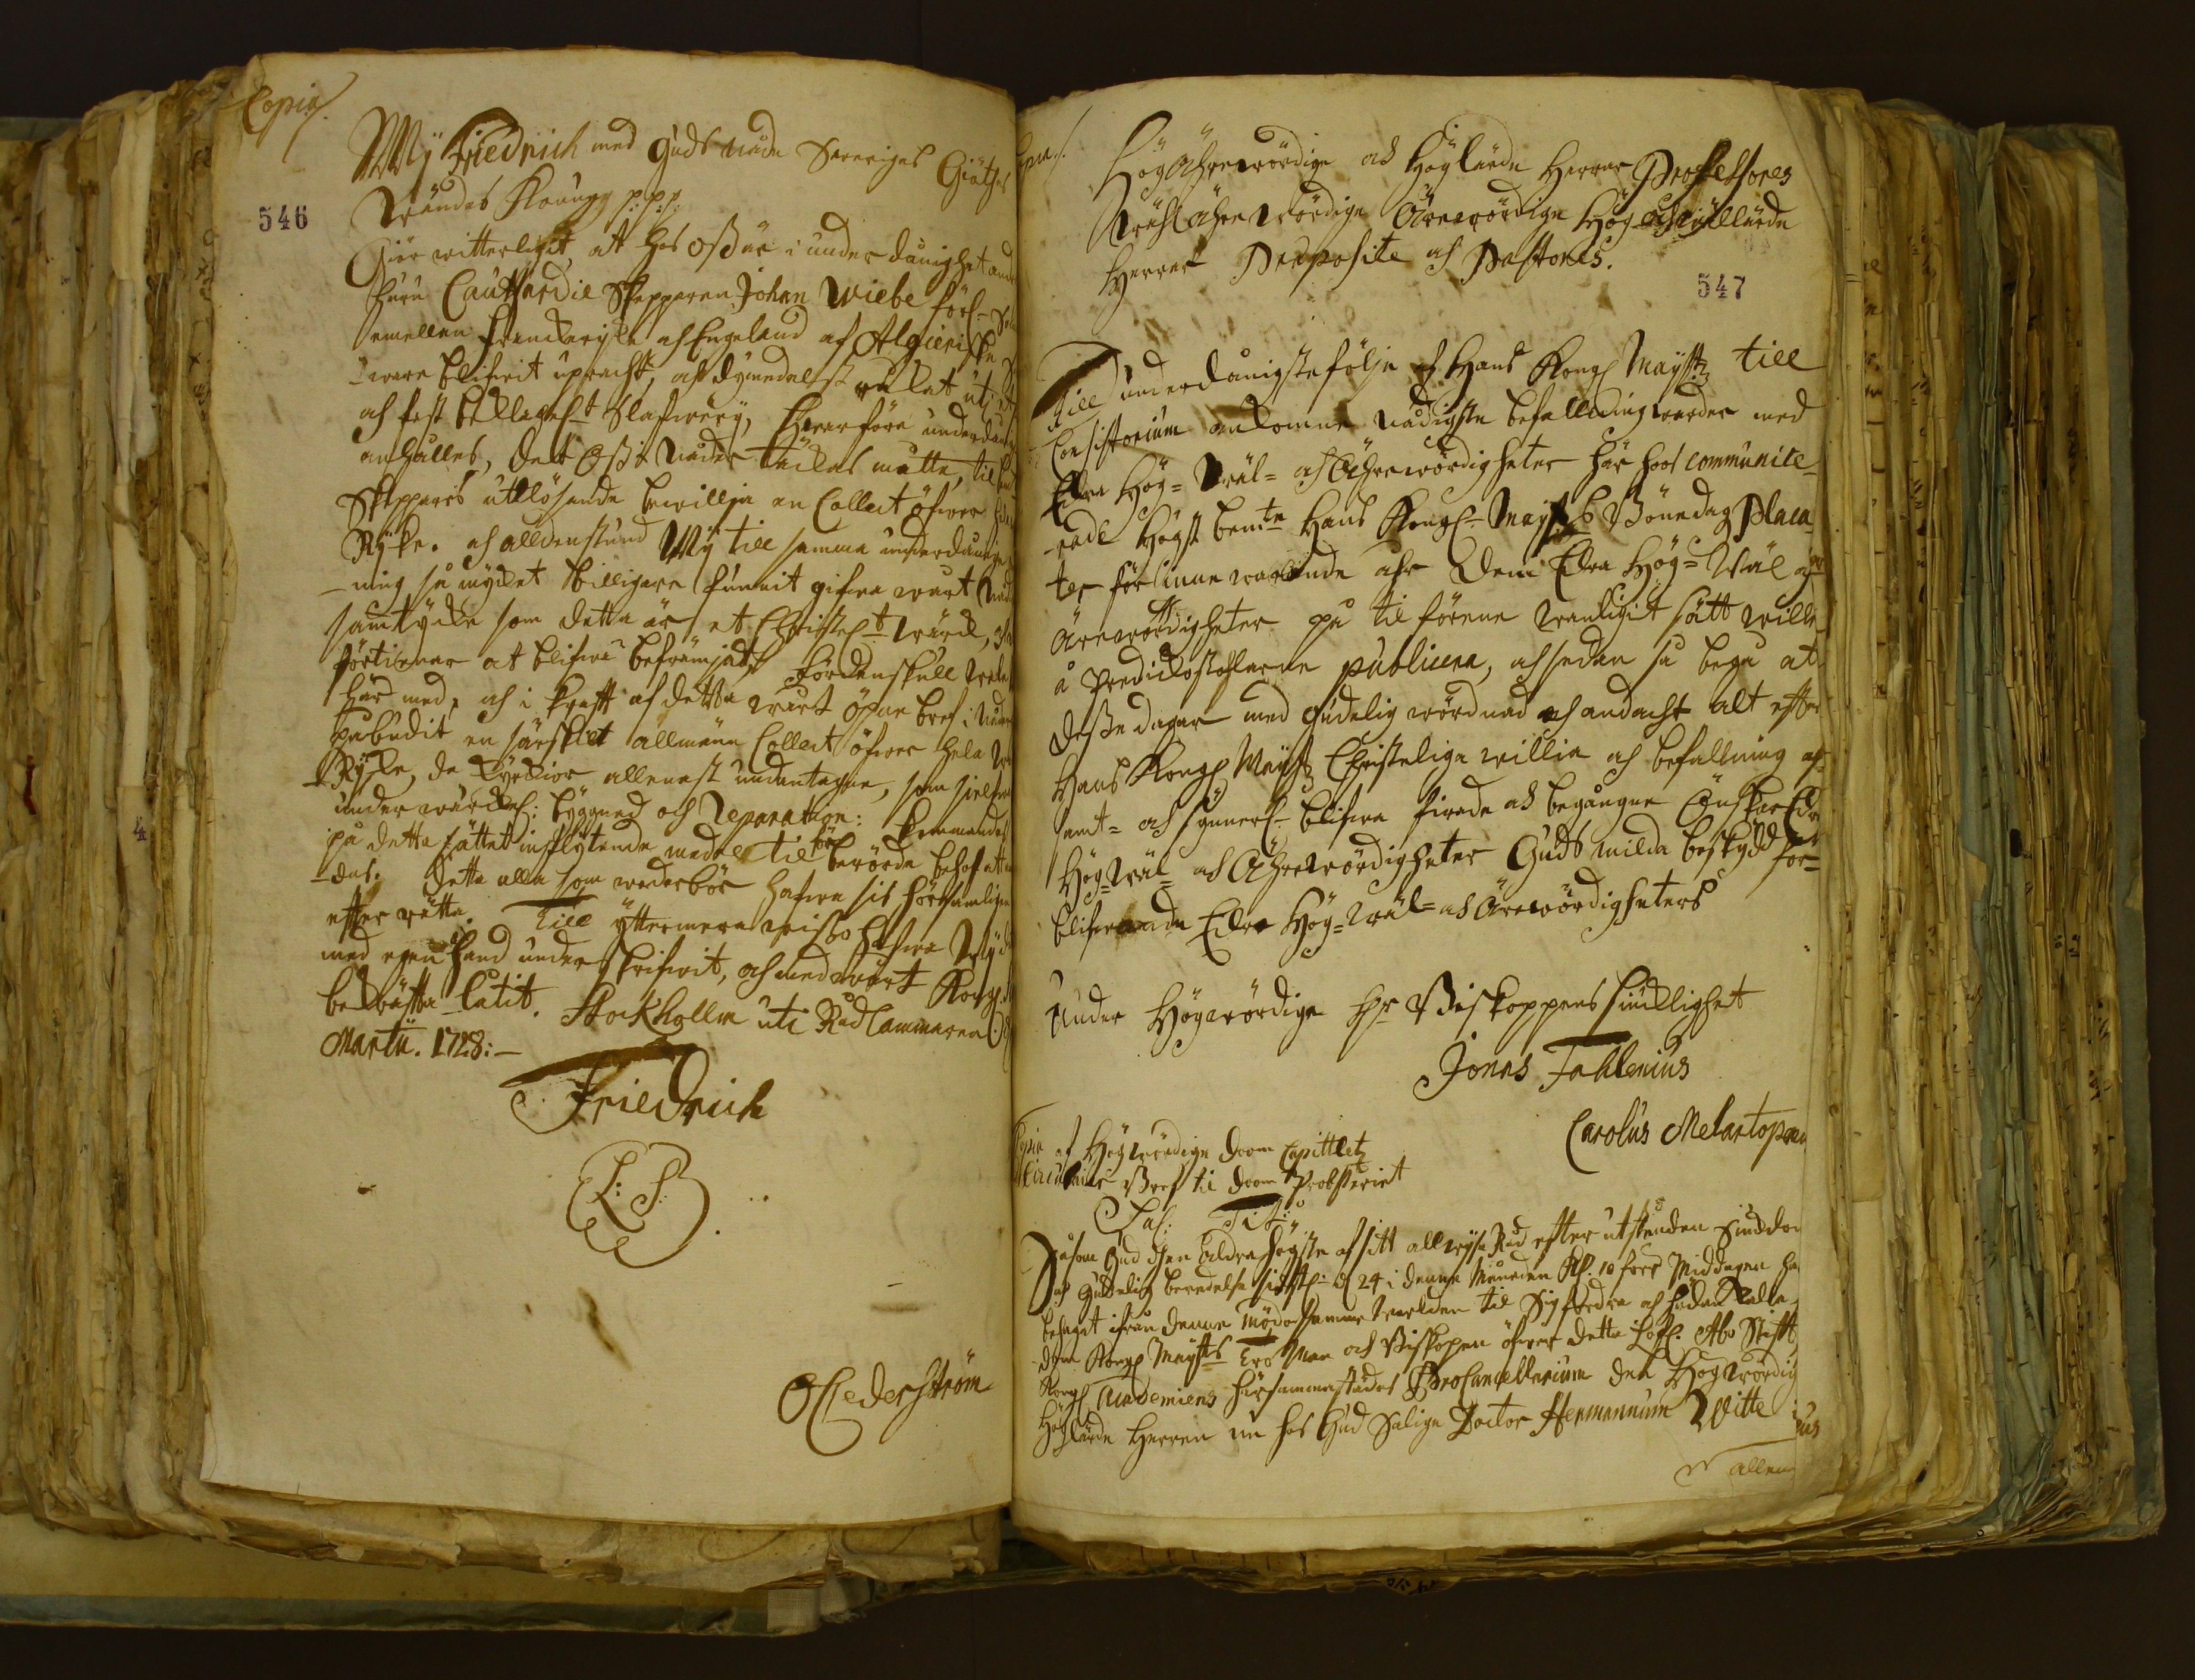 Copia.
Wÿ Friedrich med Guds nåde Sweriges Giötes
Wändes Konung p.p.p.
546
Giör witterligit, at hos Oss är i underdånighet
huru Cauffardie Skepparen Johan Wiebe förl.
emellan Franckeryke och Engeland af Algieriske
ware blifwit upracht, och dymedelst råkat uti
och fast beklagel:t slafwery, hwarföre underdån
anhålles, det Oss i nåder täckes måtte, til
Skepparens utlösande bewillja en Collect öfwer
Ryke. och alldenstund Wÿ till samma underdånige
-ning så mycket billigare funnit gifwa wårt
samtycke som detta är et Christel:t wärck,
förtienar at blifwa befrämjadt. Fördenskull
här med, och i krafft af detta wårt öpne bref i
påbudit en särskilt allmänn Collect öfwer hela
Ryke, de kyrckior allenast undantagne, som
under wärckel: byggnad och Reparation:
på detta sättet inflytande medel til berörde behof
-das. Detta alla som wederbör hafwe sig hörsamligen
efter rätta. Till yttermera wisso hafwe Wÿ
med egen hand underskrifwit, och med wårt Kongl.
bekräfta låtit. Stockhollm uti Råd Cammaren
Martii. 1728:-
Friedrich
L: S:
O Cederström
Högährewördige och Höglärde Herrar Professores
Wähl ährewördige Ärewördige Hög och wällärde
Herrar Præposite och Pastores.
547
Till underdånigste följe af Hans Kongl Mayst:tz till
Consistorium ankomne nådigste befallning warder med
Edra Hög= Wäl= och Ährewördigheter här hos communice-
-rade Högst bem:te Hans Kongl. Mayst:tz Bönedag Placa
ter för innewarande åhr dem Edra Hög= Wäl och
Ärewördigheter på til förene wanligit sätt wille
å Predickostohlarne publicera, och sedan så begå at
desse dagar med gudelig wördnad och andacht alt efter
Hans Kongl Mayst:tz Christeliga willia och befallning
samt= och synnerl. blifwa firade och begångne Önskar Edra
Hög= Wäl= och Ährewördigheter Guds milda beskydd för=
blifwande Edra Hög= Wäl= och Ärewördigheters
Under Högwördige Hr Biskoppens siuklighet
Jonas Fahlenius
Carolus Melartopæus
Copia af Högwördige Dom Capittletz
Circulair Bref til Dom Probsteriet
Sal: Tit:
Såsom Gud then Aldrahögste af sitt allwisa Råd efter utstånden siukdom
och Gudelig beredelse sidstl: d 24 i denne Måneden kl. 10 förr Middagen
behagat ifrån denne mödosamme werlden til sig fordra och hädan kalla
dem Kongl Mayst:ts Tro Man och Biskopen öfwer detta Lofl. Åbo Stifft,
Kongl Academiens härsammastädes Procancellarium den Högwördig
Höglärde Herren nu hos Gud Salige Doctor Hermannum Witte
allen